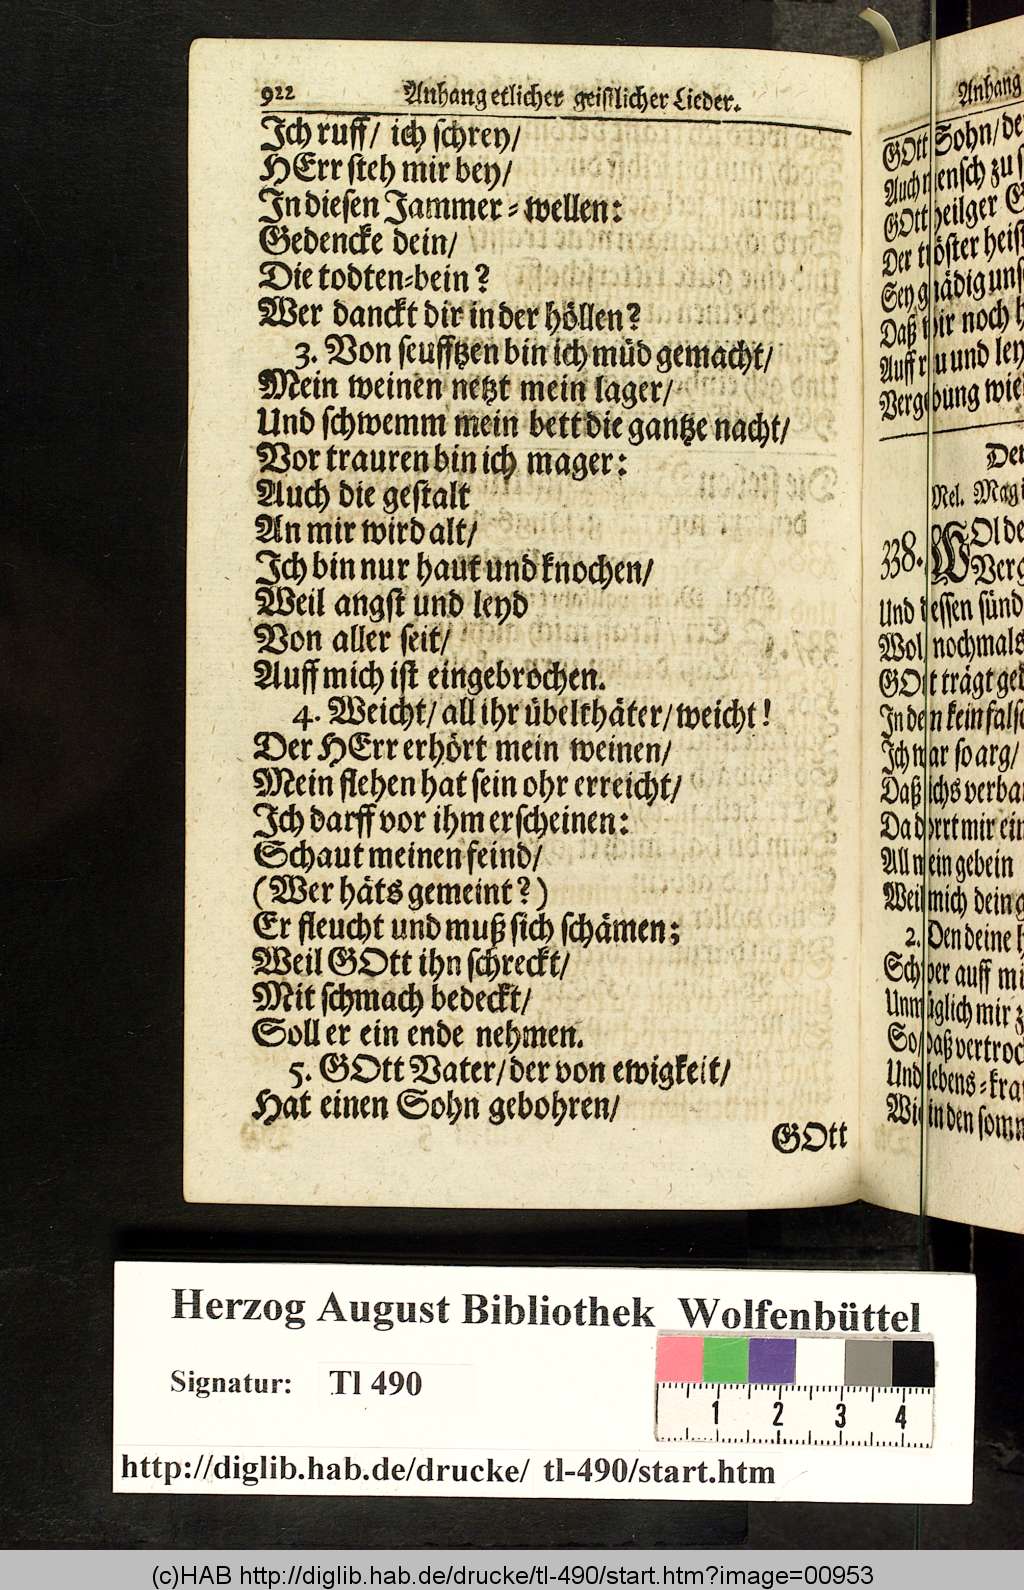 922 Anhang etlicher geistlicher Lieder.
Ich ruff/ ich schrey/
HErr steh mir bey/
In diesen Jammer-wellen:
Gedencke dein/
Die todten-bein?
Wer danckt dir in der höllen?
3. Von seufftzen bin ich müd gemacht/
Mein weinen netzt mein lager/
Und schwemm mein bett die gantze nacht/
Vor trauren bin ich mager:
Auch die gestalt
An mir wird alt/
Ich bin nur haut und knochen/
Weil angst und leyd
Von aller seit/
Auff mich ist eingebrochen.
4. Weicht/ all ihr übelthäter/ weicht!
Der HErr erhört mein weinen/
Mein flehen hat sein ohr erreicht/
Ich darff vor ihm erscheinen:
Schaut meinen feind/
(Wer häts gemeint?)
Er fleucht und muß sich schämen;
Weil GOtt ihn schreckt/
Mit schmach bedeckt/
Soll er ein ende nehmen.
5. GOtt Vater/ der von ewigkeit/
Hat einen Sohn gebohren/
GOtt
Anhang
GOtt Sohn/ de
Auch mensch zu s
GOtt heilger G
Der tröster heist
Sey gnädig uns
Daß wir noch h
Auff reu und ley
Vergebung wie
Der
Mel. Magi
338. WOl de
Verg
Und dessen sünd
Wol nochmals
GOtt trägt ged
In dem kein falsc
Ich war so arg/
Daß ichs verbar
Da dorrt mir ein
All mein gebein
Weil mich dein g
2. Den deine h
Schwer auff mi
Unmüglich mir z
So/ daß vertroc
Und lebens-kra
Wie in den somm
Herzog August Bibliothek Wolfenbüttel
Signatur: Tl 490
1 2 3 4
http://diglib.hab.de/drucke/ tl-490/start.htm
(c)HAB http://diglib.hab.de/drucke/tl-490/start.htm?image=00953